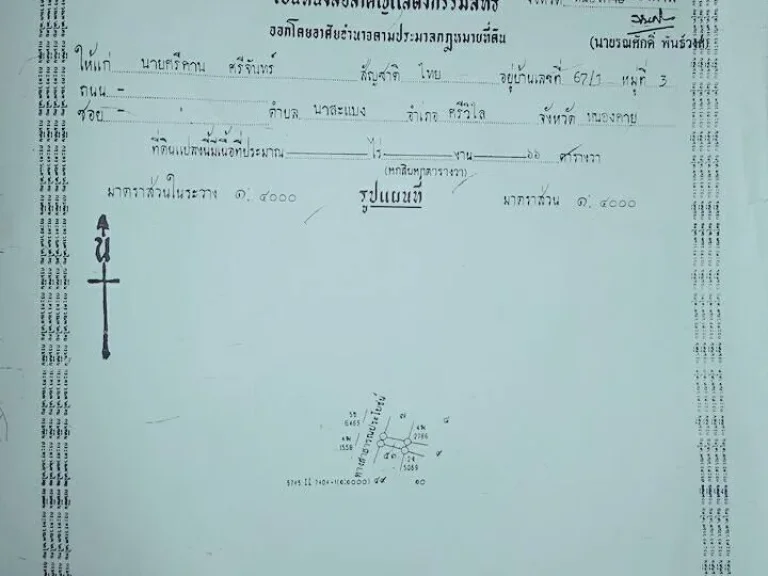 ออกโดยอาศัยอำนาจตามประมวลกฎหมายที่ดิน
(นายรณศักดิ์ พันธ์วงศ์)
ให้แก่ นายศรีดาน ศรีจันทร์ สัญชาติ ไทย อยู่บ้านเลขที่ 67/1 หมู่ที่ 3
ถนน -
ซอย - ตำบล นาสะแบง อำเภอ ศรีวิไล จังหวัด หนองคาย
ที่ดินแปลงนี้มีเนื้อที่ประมาณ ไร่ งาน ๖๖ ตารางวา
(หกสิบหกตารางวา)
มาตราส่วนในระวาง ๑: ๔๐๐๐ รูปแผนที่ มาตราส่วน ๑: ๔๐๐๐
น
ทางสาธารณประโยชน์
๗
๘
๕๓
๙
๑๐